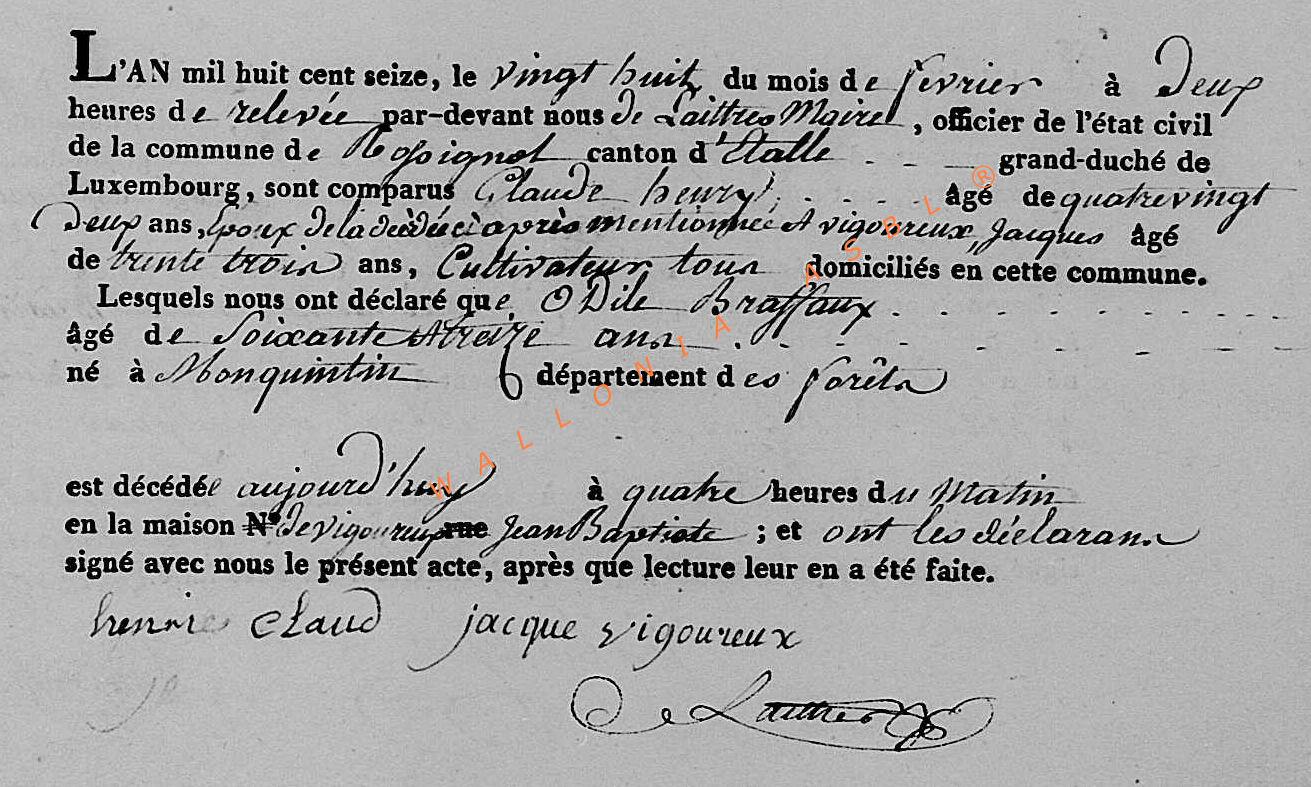 L'AN mil huit cent seize, le vingt huit du mois de fevrier à Deux
heures de relevée par-devant nous de Laittres Maire, officier de l'état civil
de la commune de Rossignol canton d'Etalle - - — grand-duché de
Luxembourg, sont comparus Claude henry, - - - - âgé de quatre vingt
Deux ans, Epoux de la dédédé ci après mentionnée et vigoureux, Jacques âgé
de trente trois ans, Cultivateur tous domiciliés en cette commune.
Lesquels nous ont déclaré que ODile Braffaux . . . . . . . .
âgé de Soixante et treize ans . - - - - - - -
né à Monquintin département des forêts
est décédée aujourd'huy à quatre heures du Matin
en la maison N.º de vigoureux rue Jean Baptiste ; et ont les déclarans
signé avec nous le présent acte, après que lecture leur en a été faite.
henrie claud jacque vigoureux
De Laittres
WALLONIA ASBL ®